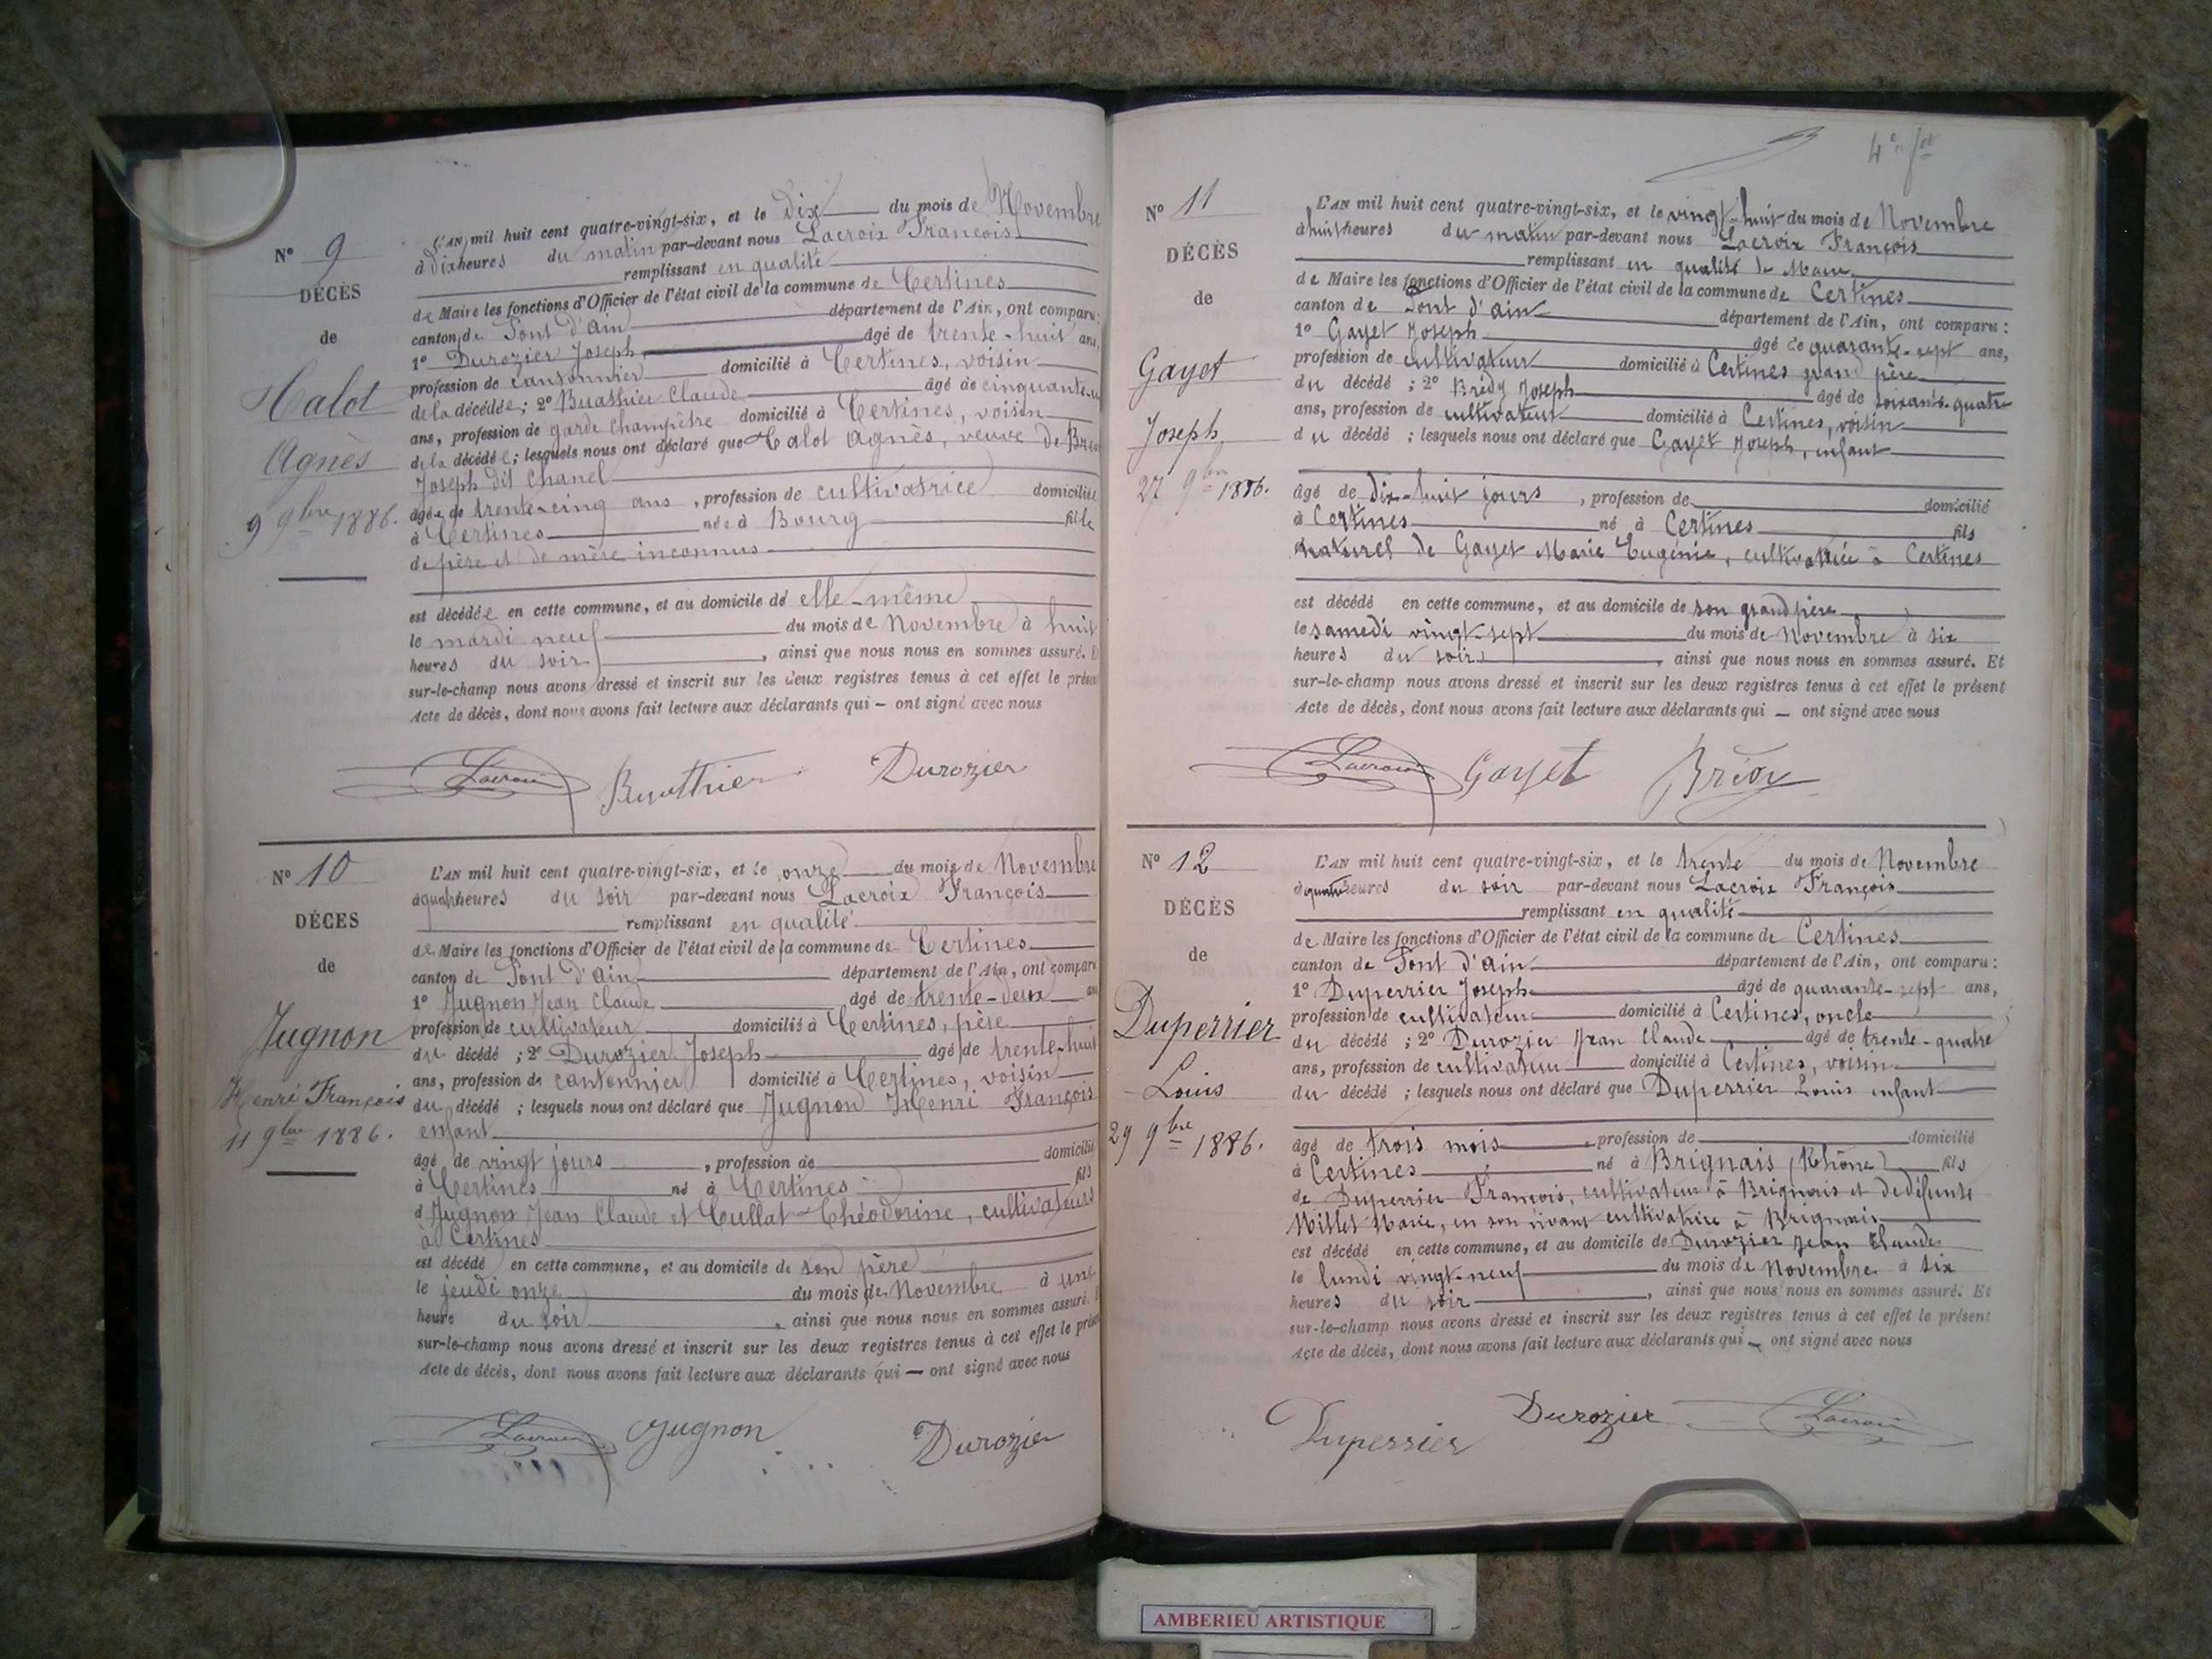 N° 9
DÉCÈS
de
Halot
Agnès
9 9bre 1886.
L'AN mil huit cent quatre-vingt-six, et le dix du mois de Novembre
à dix heures du matin par-devant nous Lacroix François
remplissant en qualité
de Maire les fonctions d'Officier de l'état civil de la commune de Certines
canton de Pont d'Ain département de l'Ain, ont comparu :
1° Durozier Joseph âgé de trente-huit ans,
profession de cantonnier domicilié à Certines, voisin
de la décédée ; 2° Buathier Claude âgé de cinquante-
ans, profession de garde champêtre domicilié à Certines, voisin
de la décédée ; lesquels nous ont déclaré que Halot Agnès, veuve de
Joseph dit Chanel
âgée de trente-cinq ans, profession de cultivatrice domiciliée
à Certines née à Bourg fille
de père et de mère inconnus
est décédée en cette commune, et au domicile de elle-même
le mardi neuf du mois de Novembre à huit
heures du soir, ainsi que nous nous en sommes assuré.
sur-le-champ nous avons dressé et inscrit sur les deux registres tenus à cet effet le présent
Acte de décès, dont nous avons fait lecture aux déclarants qui — ont signé avec nous
Lacroix Buathier Durozier
N° 10
DÉCES
de
Jugnon
Henri François
11 9bre 1886.
L'AN mil huit cent quatre-vingt-six, et le onze du mois de Novembre
à quatre heures du soir par-devant nous Lacroix François
remplissant en qualité
de Maire les fonctions d'Officier de l'état civil de la commune de Certines
canton de Pont d'Ain département de l'Ain, ont comparu
1° Jugnon Jean Claude âgé de trente-deux ans
profession de cultivateur domicilié à Certines, père
du décédé ; 2° Durozier Joseph âgé de trente-huit
ans, profession de cantonnier domicilié à Certines, voisin
du décédé ; lesquels nous ont déclaré que Jugnon Henri François
enfant
âgé de vingt jours, profession de domicilié
à Certines né à Certines fils
d Jugnon Jean Claude et Cullat Théodorine, cultivateurs
à Certines
est décédé en cette commune, et au domicile de son père
le jeudi onze du mois de Novembre à une
heure du soir, ainsi que nous nous en sommes assuré.
sur-le-champ nous avons dressé et inscrit sur les deux registres tenus à cet effet le présent
Acte de décès, dont nous avons fait lecture aux déclarants qui — ont signé avec nous
Lacroix Jugnon Durozier
N° 11
DÉCÈS
de
Gayet
Joseph
27 9bre 1886.
L'AN mil huit cent quatre-vingt-six, et le vingt-huit du mois de Novembre
à huit heures du matin par-devant nous Lacroix François
remplissant en qualité de Maire
de Maire les fonctions d'Officier de l'état civil de la commune de Certines
canton de Pont d'Ain département de l'Ain, ont comparu :
1° Gayet Joseph âgé de quarante-sept ans,
profession de cultivateur domicilié à Certines grand père
du décédé ; 2° Brédy Joseph âgé de soixante-quatre
ans, profession de cultivateur domicilié à Certines, voisin
du décédé ; lesquels nous ont déclaré que Gayet Joseph, enfant
âgé de dix-huit jours, profession de domicilié
à Certines né à Certines fils
naturel de Gayet Marie Eugénie, cultivatrice à Certines
est décédé en cette commune, et au domicile de son grand père
le samedi vingt-sept du mois de Novembre à six
heures du soir, ainsi que nous nous en sommes assuré. Et
sur-le-champ nous avons dressé et inscrit sur les deux registres tenus à cet effet le présent
Acte de décès, dont nous avons fait lecture aux déclarants qui — ont signé avec nous
Lacroix Gayet Brédy
N° 12
DÉCÈS
de
Duperrier
Louis
29 9bre 1886.
L'AN mil huit cent quatre-vingt-six, et le trente du mois de Novembre
à quatre heures du soir par-devant nous Lacroix François
remplissant en qualité
de Maire les fonctions d'Officier de l'état civil de la commune de Certines
canton de Pont d'Ain département de l'Ain, ont comparu :
1° Duperrier Joseph âgé de quarante-sept ans,
profession de cultivateur domicilié à Certines, oncle
du décédé ; 2° Durozier Jean Claude âgé de trente-quatre
ans, profession de cultivateur domicilié à Certines, voisin
du décédé ; lesquels nous ont déclaré que Duperrier Louis enfant
âgé de trois mois, profession de domicilié
à Certines né à Brignais (Rhône) fils
de Duperrier François, cultivateur à Brignais et de défunte
Millet Marie, en son vivant cultivatrice à Brignais
est décédé en cette commune, et au domicile de Durozier Jean Claude
le lundi vingt-neuf du mois de Novembre à six
heures du soir, ainsi que nous nous en sommes assuré. Et
sur-le-champ nous avons dressé et inscrit sur les deux registres tenus à cet effet le présent
Acte de décès, dont nous avons fait lecture aux déclarants qui — ont signé avec nous
Duperrier Durozier Lacroix
AMBERIEU ARTISTIQUE